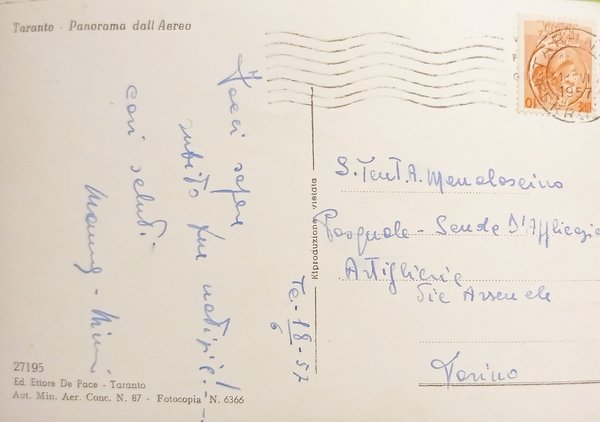 Taranto - Panorama dall'Aereo
Facci sapere
subito tue notizie!
cari saluti
Mamma - Mimi
Ta - 18-6-57
Riproduzione vietata
1957
S. Tent. A. Mendoscino
Pasquale - Scuola D'Applicazio
Artiglieria
Via Arsenale
Torino
27195
Ed. Ettore De Pace - Taranto
Aut. Min. Aer. Conc. N. 87 - Fotocopia N. 6366